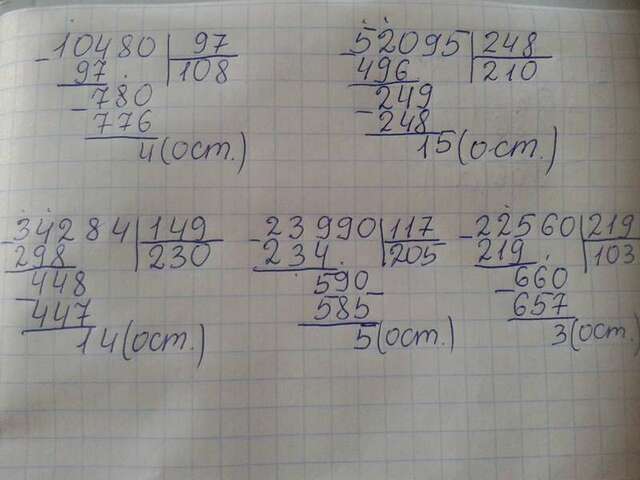 10480 | 97
97 | 108
780
776
4 (ост.)
52095 | 248
496 | 210
249
248
15 (ост.)
34284 | 149
298 | 230
448
447
14 (ост.)
23990 | 117
234 | 205
590
585
5 (ост.)
22560 | 219
219 | 103
660
657
3 (ост.)